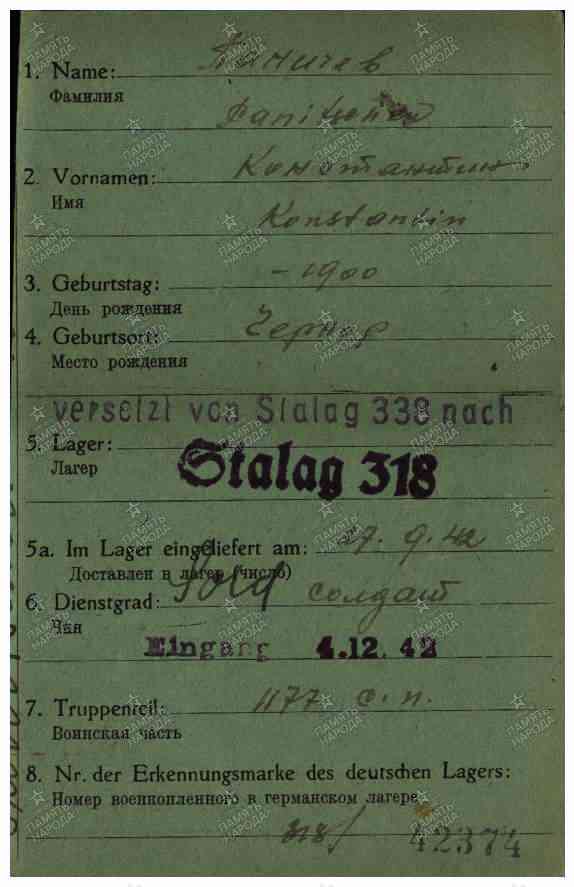 1. Name: Паничев
Фамилия
Panitschew
2. Vornamen: Константин
Имя
Konstantin
3. Geburtstag: - 1900
День рождения
4. Geburtsort:
Место рождения
versetzt von Stalag 338 nach
5. Lager: Stalag 318
Лагер
5a. Im Lager eingeliefert am: 27. 9. 42
Доставлен в лагер (число)
6. Dienstgrad: Sold солдат
Чин
Eingang 4.12.42
7. Truppenteil: 1177 с. п.
Воинская часть
8. Nr. der Erkennungsmarke des deutschen Lagers:
Номер военнопленного в германском лагере
318/ 42374
ПАМЯТЬ НАРОДА